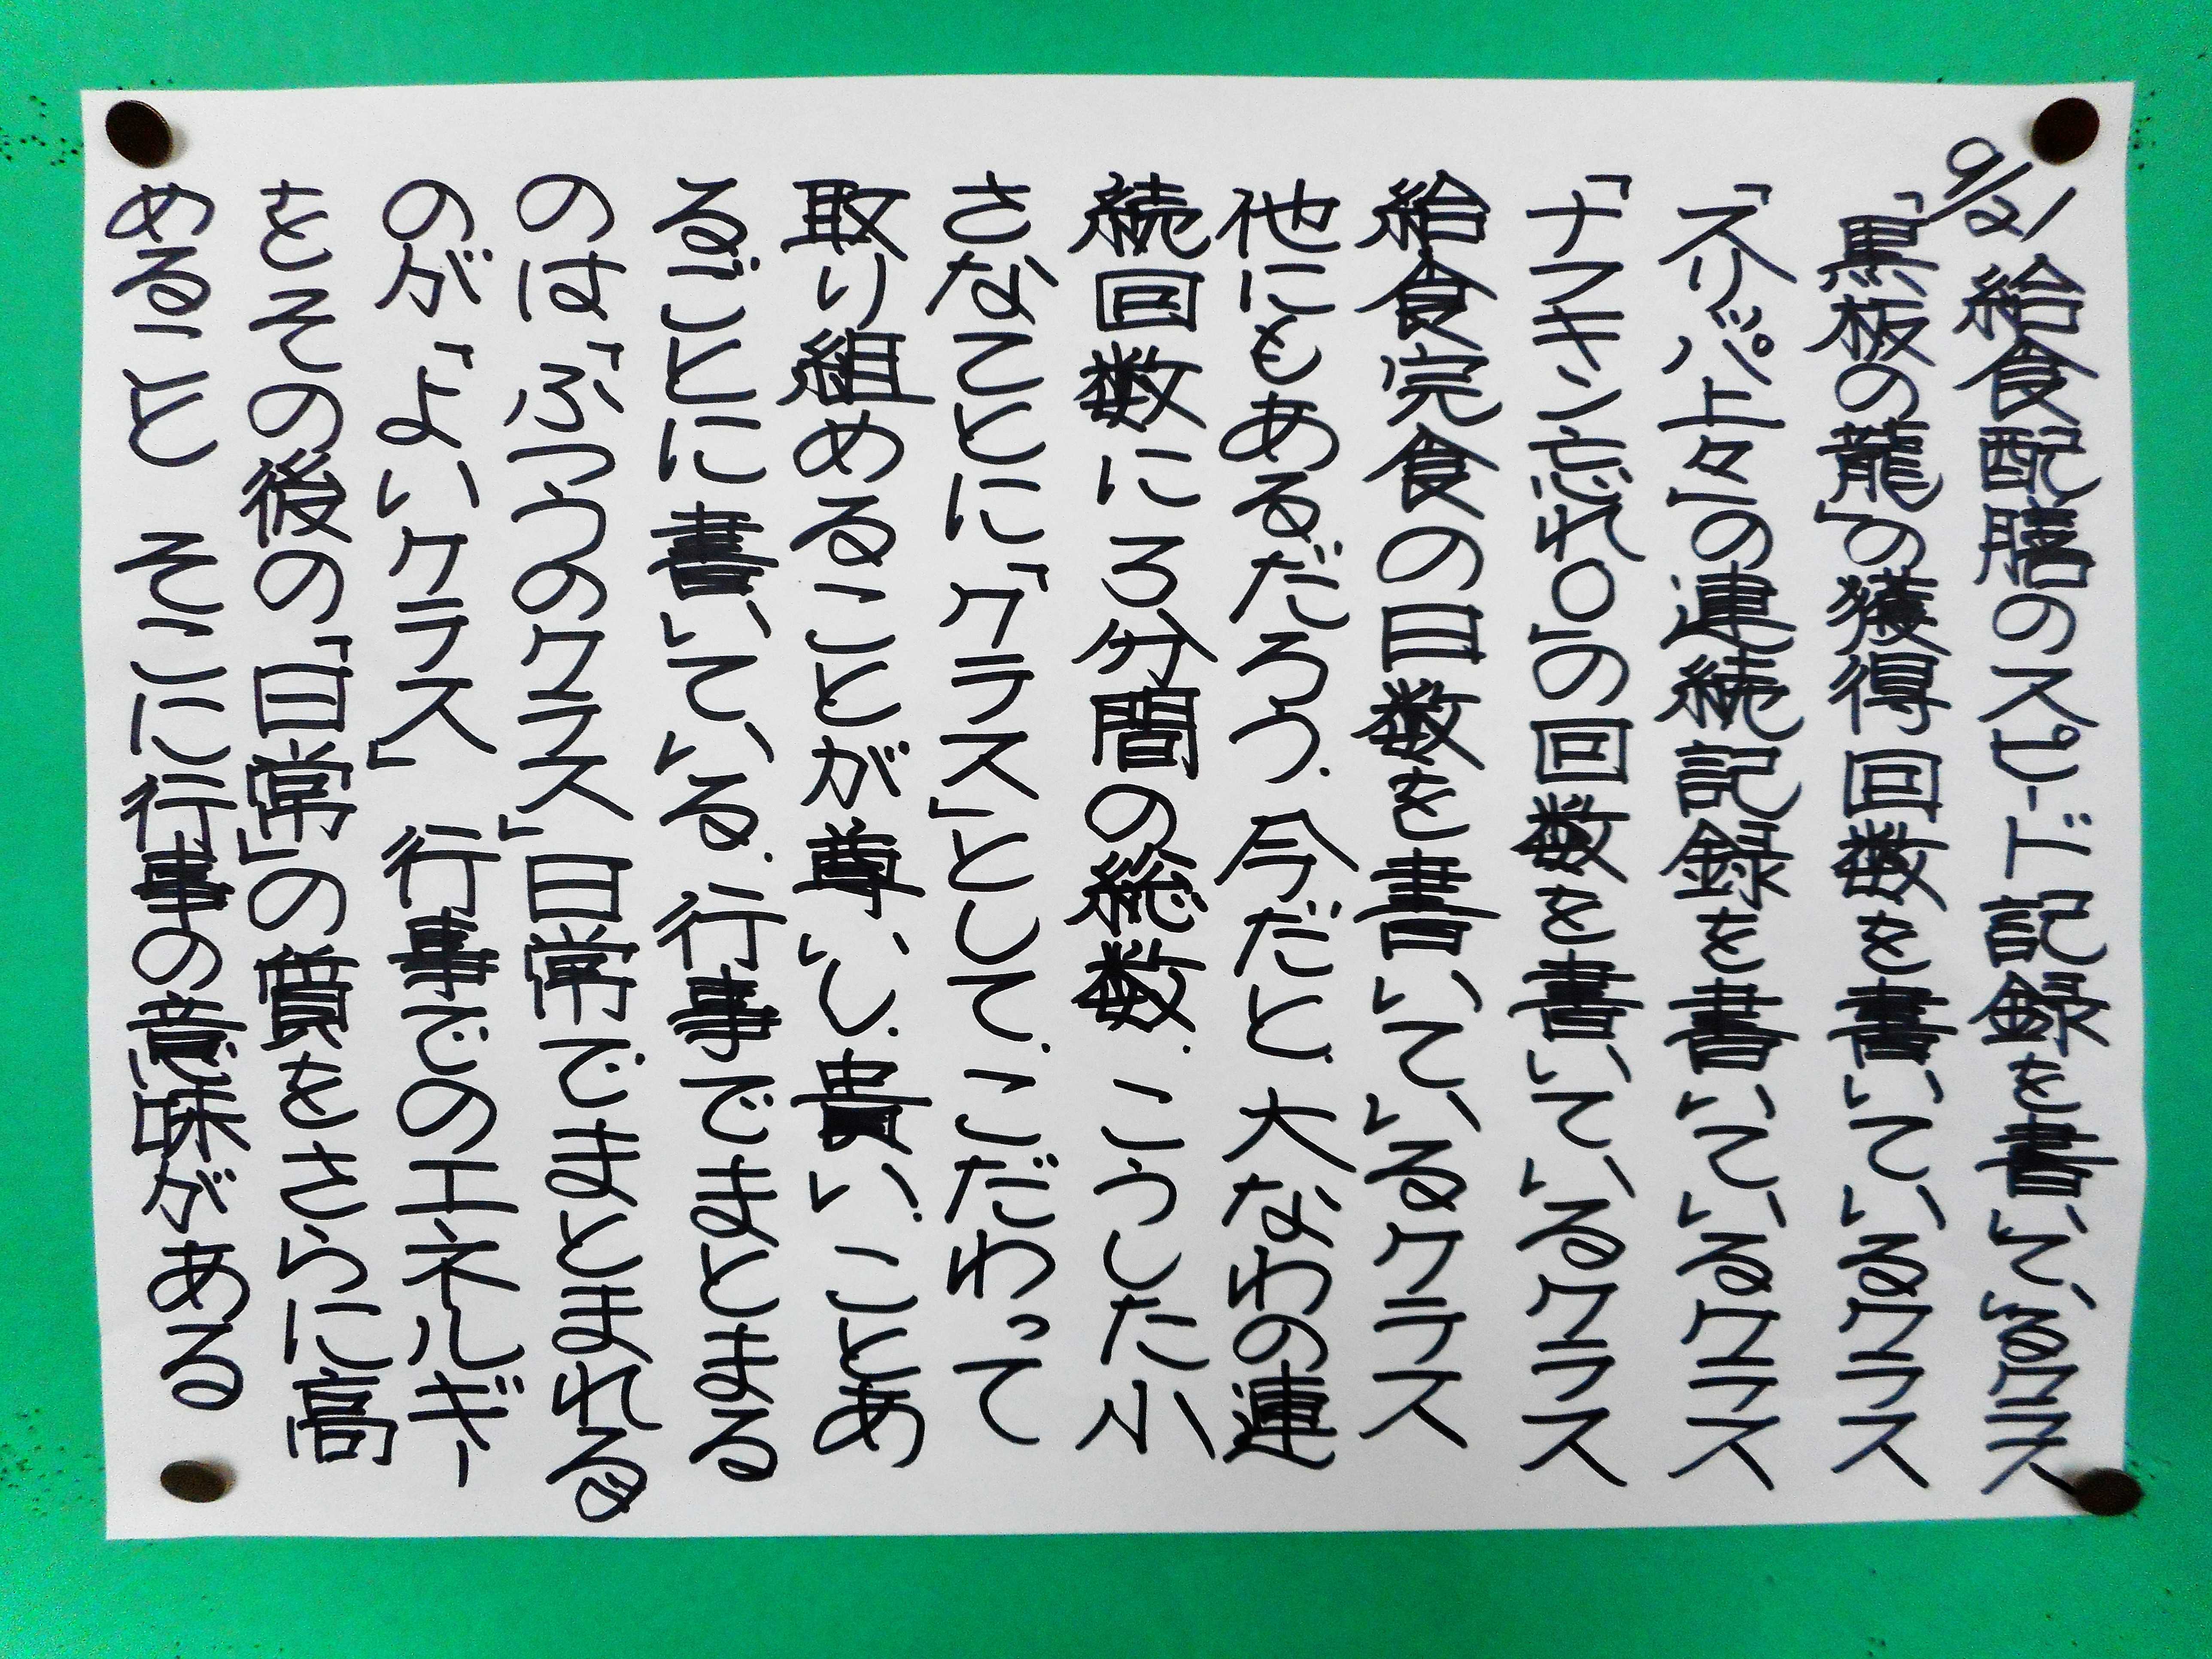 9/21 給食配膳のスピード記録を書いているクラス
「黒板の龍」の獲得回数を書いているクラス
「スリッパ上々」の連続記録を書いているクラス
「ナフキン忘れ〇」の回数を書いているクラス
給食完食の日数を書いているクラス
他にもあるだろう.今だと.大なわの連
続回数に3分間の総数.こうした小
さなことに「クラス」として.こだわって
取り組めることが尊いし.貴い.ことあ
るごとに書いている.行事でまとまる
のは「ふつうのクラス」日常でまとまれる
のが「よいクラス」 行事でのエネルギー
をその後の「日常」の質をさらに高
めること そこに行事の意味がある